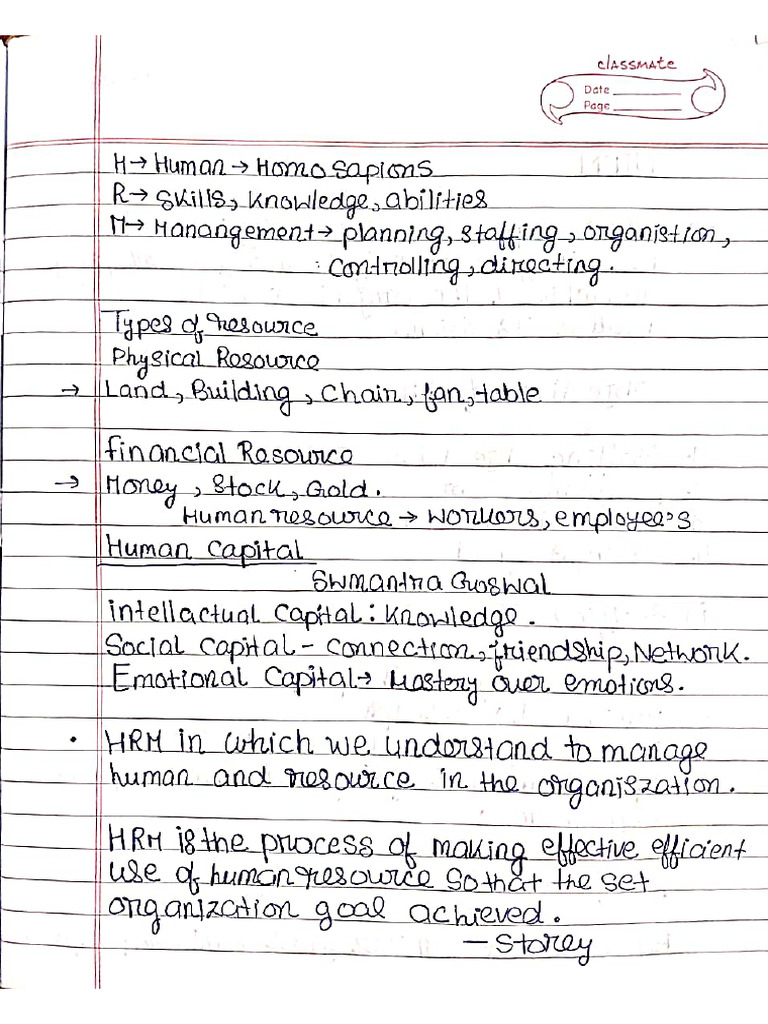 classmate
Date
Page
H→ Human → Homo sapions
R→ Skills, knowledge, abilities
M→ Manangement → planning, staffing, organistion,
controlling, directing.
Types of resource
Physical Resource
→ Land, Building, Chair, fan, table
financial Resource
→ Money, Stock, Gold.
Human resource → workers, employee's
Human Capital
Swmantra
intellactual Capital : Knowledge.
Social Capital - connection, friendship, Network.
Emotional Capital → Mastery over emotions.
• HRM in which we understand to manage
human and resource in the organiszation.
HRM is the process of making effective efficient
use of human resource so that the set
organization goal achieved.
- Storey